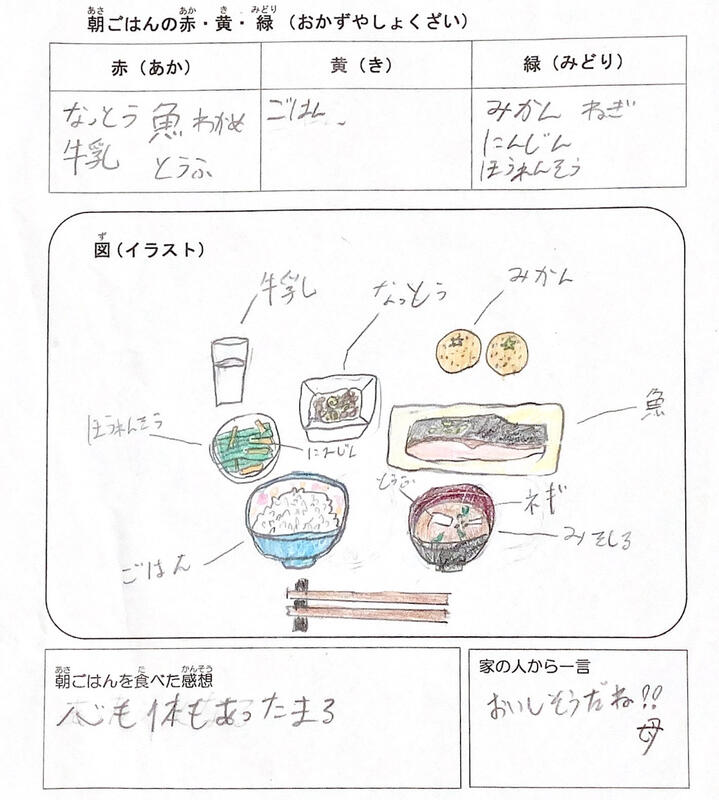 朝ごはんの赤・黄・緑（おかずやしょくざい）
赤（あか）
黄（き）
緑（みどり）
なっとう 魚 わかめ
牛乳 とうふ
ごはん
みかん ねぎ
にんじん
ほうれんそう
図（イラスト）
牛乳
なっとう
みかん
魚
ほうれんそう
にんじん
とうふ
ネギ
みそしる
ごはん
朝ごはんを食べた感想
心も体もあったまる
家の人から一言
おいしそうだね!!
母